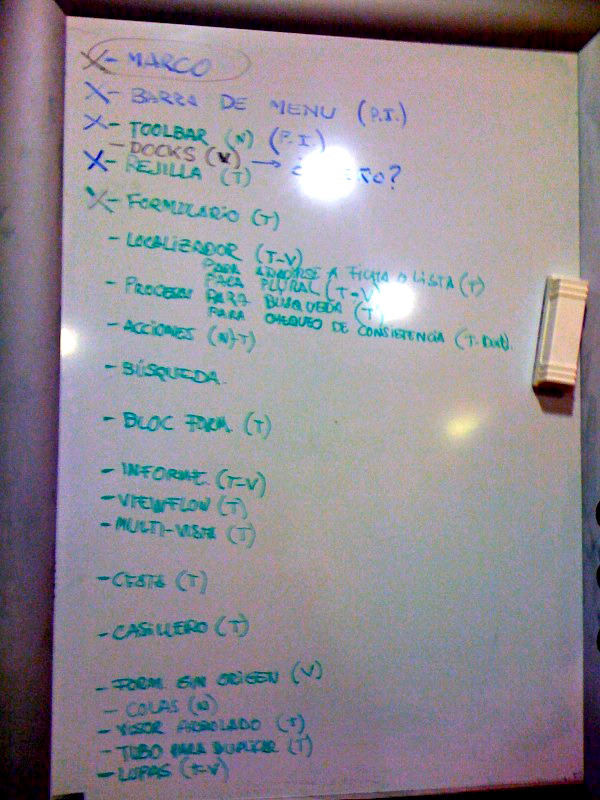 X- MARCO
X- BARRA DE MENU (P.I.)
X- TOOLBAR (N) (P.I.)
- DOCKS (V)
X- REJILLA (T) → ¿
X- FORMULARIO (T)
- LOCALIZADOR (T-V)
PARA AÑADIRSE A FICHA O LISTA (T)
PARA PLURAL (T-V)
- PROCESOS PARA BUSQUEDA (T)
PARA CHEQUEO DE CONSISTENCIA (T.
- ACCIONES (N)-T)
- BÚSQUEDA.
- BLOC FORM. (T)
- INFORME. (T-V)
- VIEWFLOW (T)
- MULTI-VISTA (T)
- CESTA (T)
- CASILLERO (T)
- FORM. SIN ORIGEN (V)
- COLAS (N)
- VISOR ARBOLADO (T)
- TUBO PARA DUPLICAR (T)
- LUPAS (T-V)